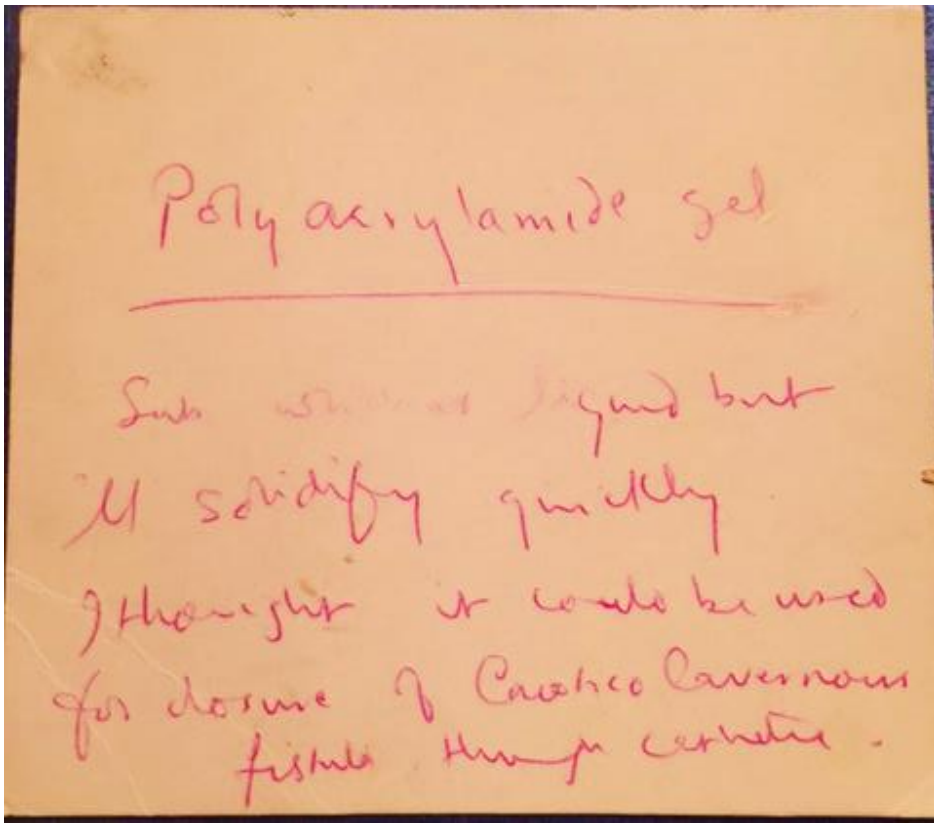 Polyacrylamide gel
Sub which is liquid but
'll solidify quickly
I thought it could be used
for closure of Carotico Cavernous
fistula through catheter.